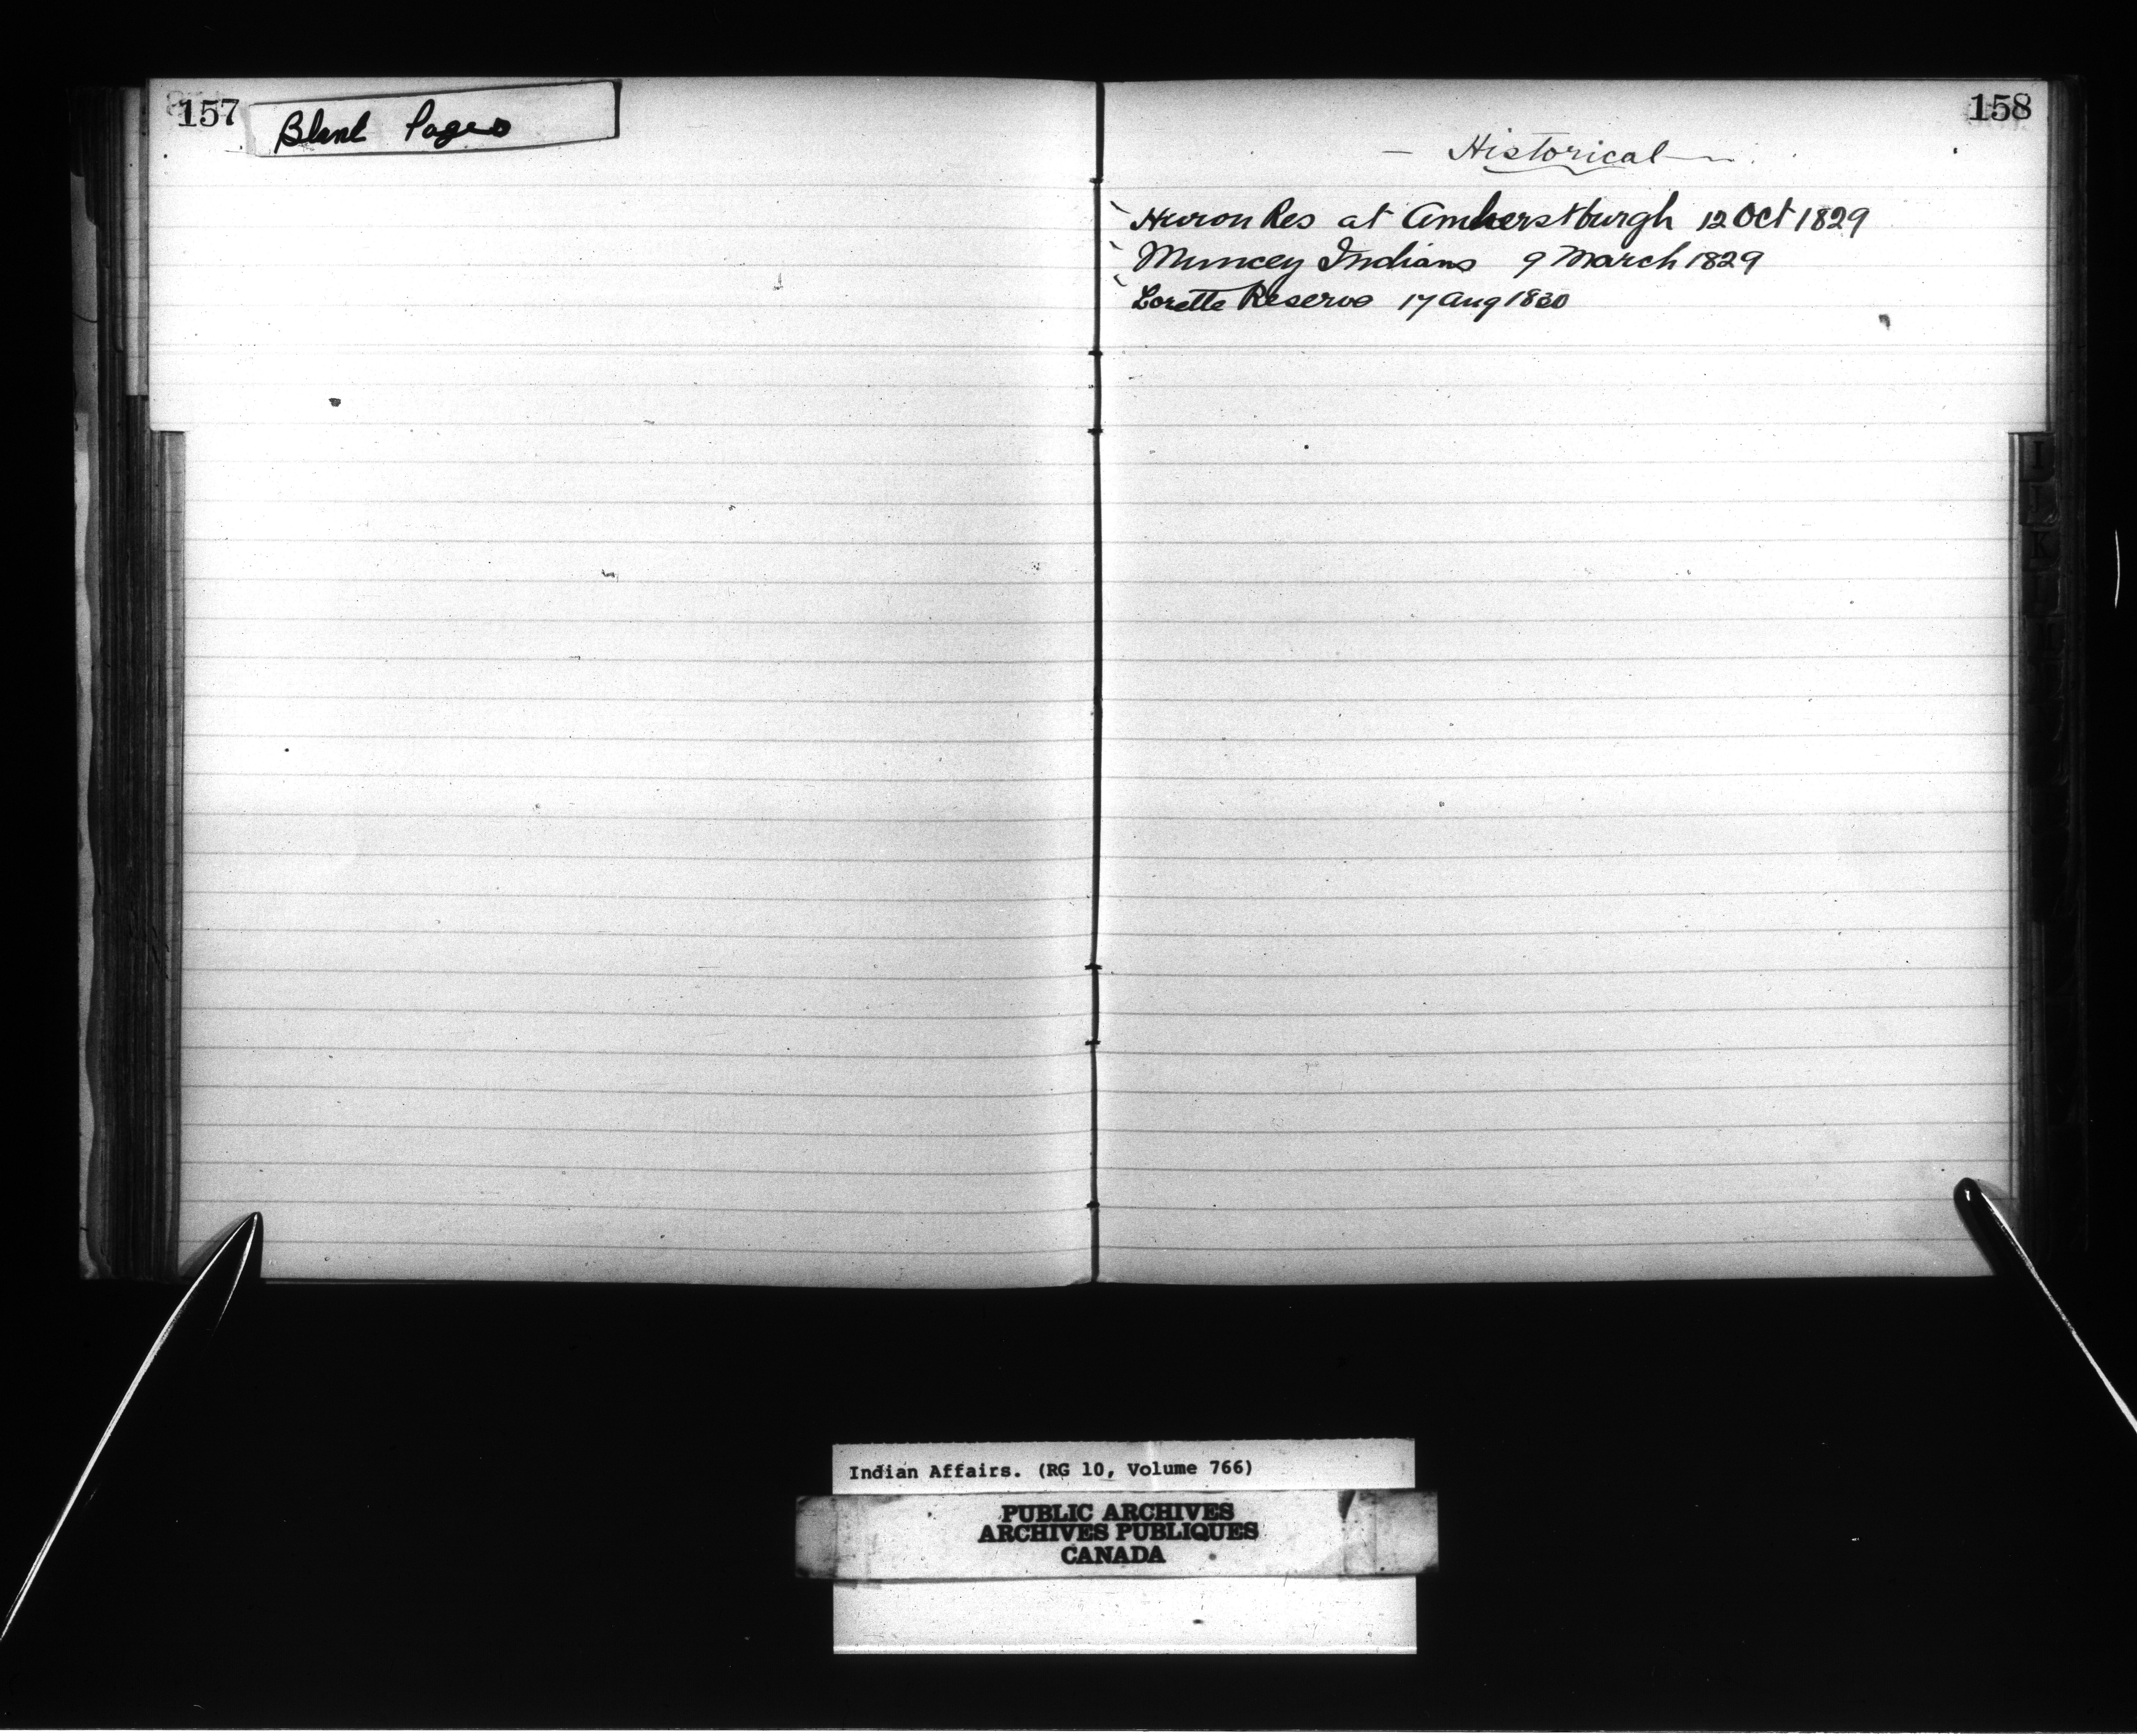 157
Blank Pages
158
— Historical —
Huron Res at Amherstburgh 12 Oct 1829
Muncey Indians 9 March 1829
Lorette Reserve 17 Aug 1830
I
J
K
L
Indian Affairs. (RG 10, Volume 766)
PUBLIC ARCHIVES
ARCHIVES PUBLIQUES
CANADA